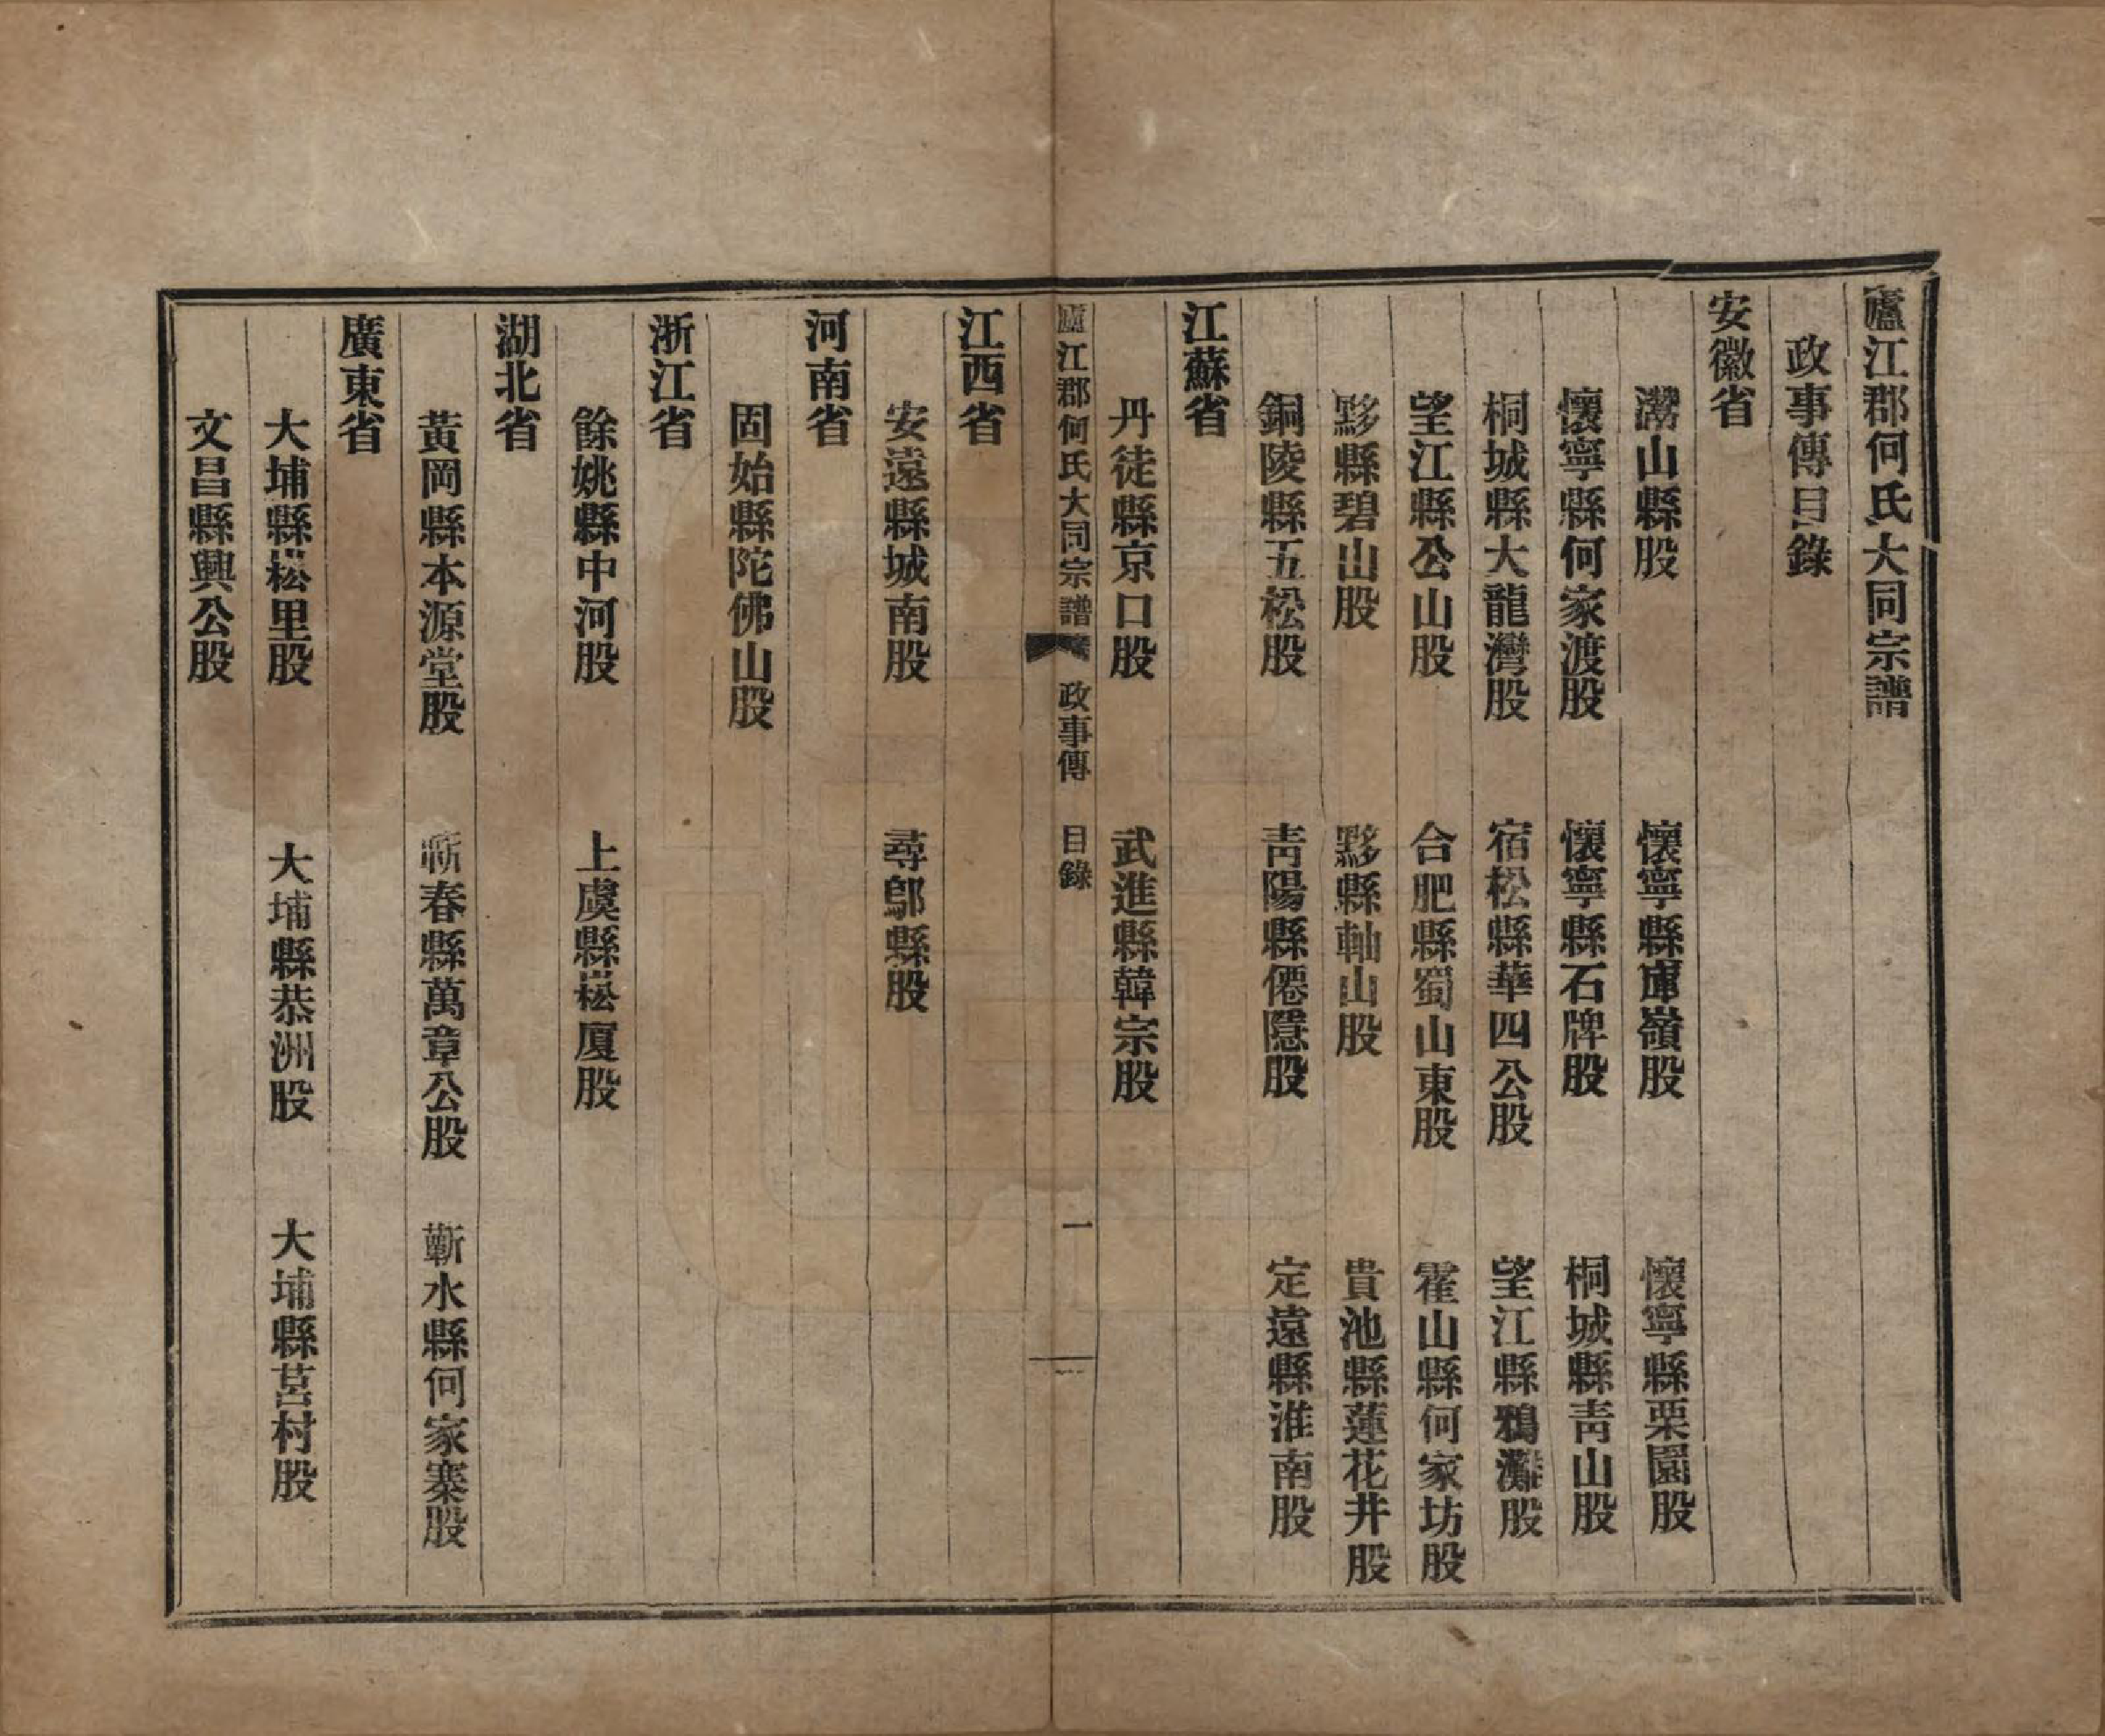 廬江郡何氏大同宗譜
政事傳目錄
安徽省
灊山縣股　懷寧縣庫嶺股　懷寧縣栗園股
懷寧縣何家渡股　懷寧縣石牌股　桐城縣靑山股
桐城縣大龍灣股　宿松縣華四公股　望江縣鴉灘股
望江縣公山股　合肥縣蜀山東股　霍山縣何家坊股
黟縣碧山股　黟縣軸山股　貴池縣蓮花井股
銅陵縣五松股　靑陽縣僊隱股　定遠縣淮南股
江蘇省
丹徒縣京口股　武進縣韓宗股
廬江郡何氏大同宗譜　政事傳　目錄　一
江西省
安遠縣城南股　尋鄔縣股
河南省
固始縣陀佛山股
浙江省
餘姚縣中河股　上虞縣崧廈股
湖北省
黃岡縣本源堂股　蘄春縣萬章公股　蘄水縣何家寨股
廣東省
大埔縣崧里股　大埔縣恭洲股　大埔縣莒村股
文昌縣興公股